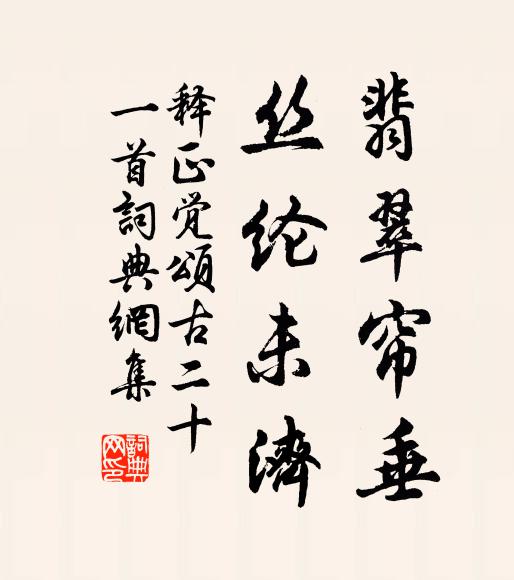 翡翠帘垂
丝纶未济
释正觉颂古二十
一首詞典網集
詞典网印